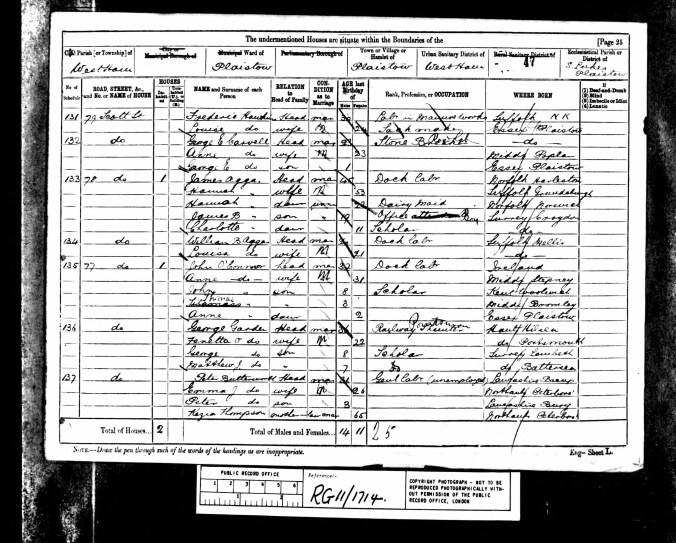 The undermentioned Houses are situate within the Boundaries of the
[Page 25
Civil Parish [or Township] of
City or Municipal Borough of
Municipal Ward of
Parliamentary Borough of
Town or Village or Hamlet of
Urban Sanitary District of
Rural Sanitary District of
Ecclesiastical Parish or District of
West Ham
Plaistow
Plaistow
West Ham
47
Plaistow
No. of Schedule
ROAD, STREET, &c., and No. or NAME of HOUSE
HOUSES
NAME and Surname of each Person
RELATION to Head of Family
CONDITION as to Marriage
AGE last Birthday of
Males
Females
Rank, Profession, or OCCUPATION
WHERE BORN
If (1) Deaf-and-Dumb (2) Blind (3) Imbecile or Idiot (4) Lunatic
131 79 Scott St Frederic Head mar Lab in Manure works Suffolk
Louise do wife M Sack maker Essex Plaistow
132 do George E Carvell Head mar Stone
Anne do wife M 23 Middx Poplar
George E do son 1 Essex Plaistow
133 78 do 1 James Aggar Head mar Dock Labr Norfolk Harleston
Hannah wife M 53 Suffolk Grundisburgh
Hannah " daur Dairy Maid Norfolk
James B " son Office Boy Surrey Croydon
Charlotte " daur 11 Scholar do
134 do William B Aggar Head mar Dock Labr Suffolk Mellis
Louisa do wife M 21 do
135 77 do 1 John O'Connor head mar Dock Labr Ireland
Anne do wife M 31 Middx Stepney
John son 8 Scholar Kent Woolwich
Thomas " 3 Middx Bromley
Anne " daur 2 Essex Plaistow
136 do George Garden Head mar Railway Hants Hilsea
do wife M 22 do Portsmouth
George do son 8 Scholar Surrey Lambeth
Matthew J do " 7 do do Battersea
137 do Peter Butterworth Head mar Genl Labr (unemployed) Lancashire
Emma J do wife M 26 Northants Peterboro
Peter do son 3 Lancashire Bury
Kezia Thompson mother-in-law 65 Northants Peterboro
Total of Houses... 2
Total of Males and Females... 14 11
25
NOTE.—Draw the pen through such of the words of the headings as are inappropriate.
Eng—Sheet L.
PUBLIC RECORD OFFICE
1 2 3 4 5 6
1 2
Reference:-
RG 11/1714
COPYRIGHT PHOTOGRAPH - NOT TO BE REPRODUCED PHOTOGRAPHICALLY WITHOUT PERMISSION OF THE PUBLIC RECORD OFFICE, LONDON